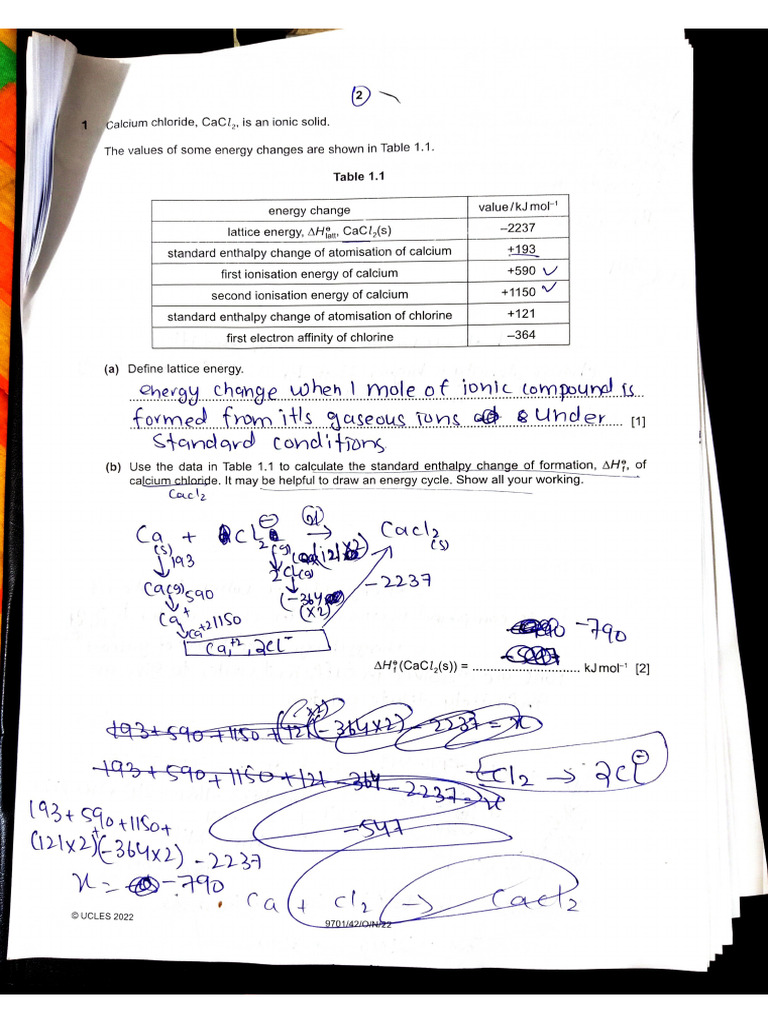 2
1 Calcium chloride, CaCl₂, is an ionic solid.
The values of some energy changes are shown in Table 1.1.
Table 1.1
energy change value / kJ mol⁻¹
lattice energy, ΔH⦵latt, CaCl₂(s) –2237
standard enthalpy change of atomisation of calcium +193
first ionisation energy of calcium +590 ✓
second ionisation energy of calcium +1150 ✓
standard enthalpy change of atomisation of chlorine +121
first electron affinity of chlorine –364
(a) Define lattice energy.
energy change when 1 mole of ionic compound is
formed from it's gaseous ions under [1]
standard conditions.
(b) Use the data in Table 1.1 to calculate the standard enthalpy change of formation, ΔH⦵f, of
calcium chloride. It may be helpful to draw an energy cycle. Show all your working.
Cacl₂
Ca + Cl₂ → Cacl₂
(s) (g) (s)
↓193 (121×2)
Ca(g) 2Cl(g) -2237
↓590 (-364
Ca⁺ (×2)
↓1150
Ca⁺²
Ca⁺², 2Cl⁻
-790
ΔH⦵f(CaCl₂(s)) = .............................. kJ mol⁻¹ [2]
193+590+1150+(121(×2)(-364×2) -2237 = x
193+590+1150+121 -364 -2237 = x
Cl₂ → 2Cl⁻
-547
193+590+1150+
(121×2)+(-364×2) -2237
x = -790
Ca + Cl₂ → Cacl₂
© UCLES 2022
9701/42/O/N/22